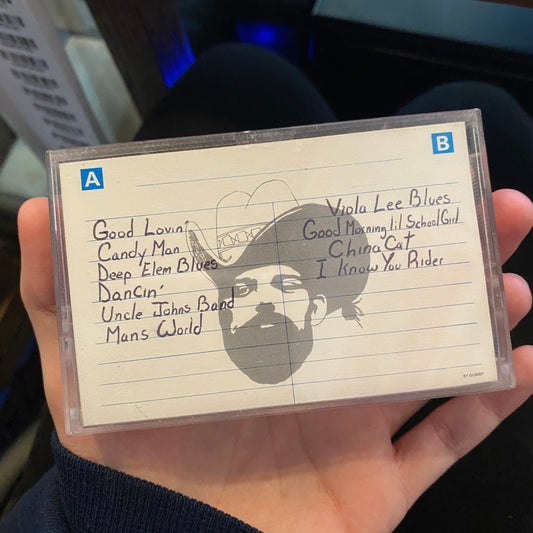 A
B
Good Lovin'
Candy Man
Deep 'Elem Blues
Dancin'
Uncle Johns Band
Mans World
Viola Lee Blues
Good Morning lil SchoolGirl
China Cat
I Know You Rider